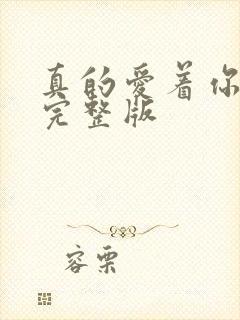 真的爱着你
完整版
容栗